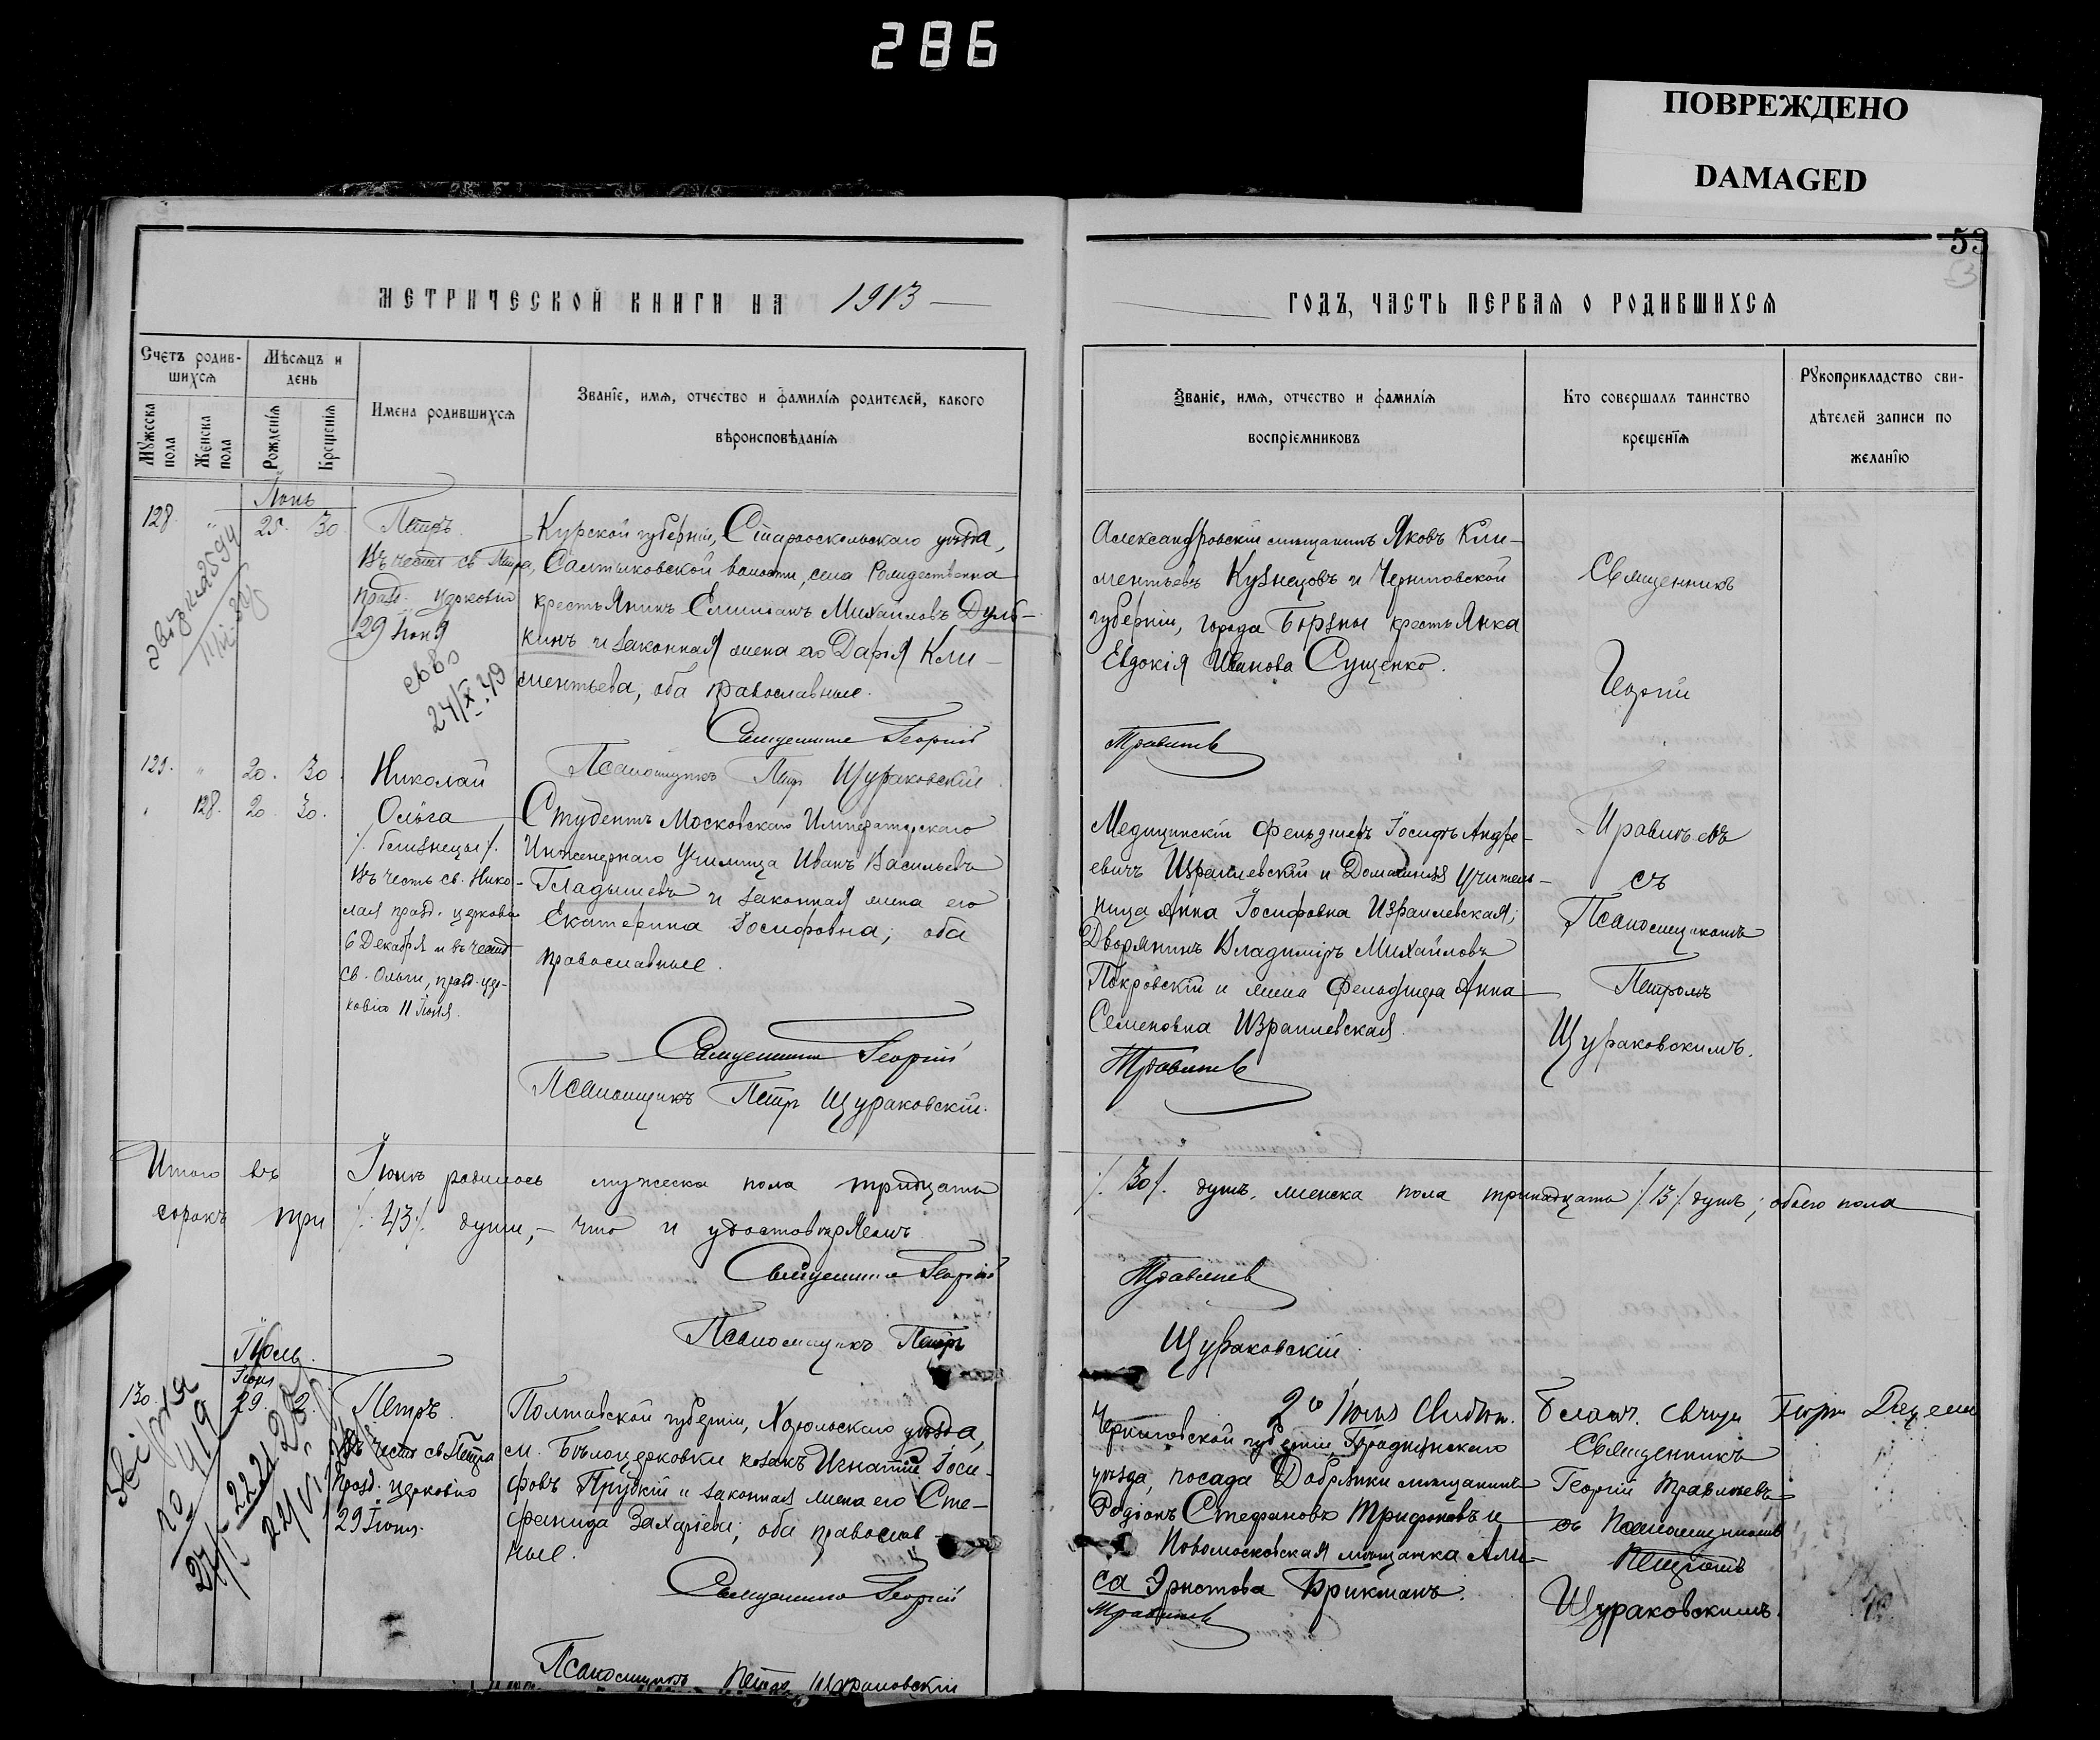 286
ПОВРЕЖДЕНО
DAMAGED
53
МЕТРИЧЕСКОЙ КНИГИ НА 1913
ГОДЪ, ЧАСТЬ ПЕРВАЯ О РОДИВШИХСЯ
Счетъ родив-
шихся
Мѣсяцъ и
день
Мужеска
пола
Женска
пола
Рожденія
Крещенія
Имена родившихся
Званіе, имя, отчество и фамилія родителей, какого
вѣроисповѣданія
Званіе, имя, отчество и фамилія
воспріемниковъ
Кто совершалъ таинство
крещенія
Рукоприкладство сви-
дѣтелей записи по
желанію
Іюнь
128. " 25. 30.
Петръ.
Въ честь св. Петра,
празд. церковію
29 Іюня
24/X.49
Курской губерніи, Старооскольскаго уѣзда,
Салтыковской волости, села Рождественна
крестьянинъ Михаиловъ Дуль-
кинъ и законная жена его Дарія Кли-
ментьева, оба православные.
Священникъ Георгій
Псаломщикъ Петръ Щураковскій.
Александровскій мѣщанинъ Яковъ Кли-
ментьевъ Кузнецовъ и Черниговской
губерніи, города Борзны крестьянка
Евдокія Иванова Сущенко.
Травинъ
Священникъ
Георгій
129. " 20. 30.
Николай
" 128. 20. 30.
Ольга
/. близнецы /.
Въ честь св. Нико-
лая празд. церковію
6 Декабря и въ честь
св. Ольги, празд. цер-
ковію 11 Іюля.
Студентъ Московскаго Императорскаго
Инженернаго Училища Иванъ Васильевъ
Гладышевъ и законная жена его
Екатерина Іосифовна; оба
православные.
Священникъ Георгій
Псаломщикъ Петръ Щураковскій.
Медицинскій фельдшеръ Іосифъ Андре-
евичъ Израилевскій и Домашняя Учитель-
ница Анна Іосифовна Израилевская;
Дворянинъ Владиміръ Михайловъ
Покровскій и жена фельдшера Анна
Семеновна Израилевская.
съ
Псаломщикомъ
Петромъ
Щураковскимъ.
Итого въ Іюнѣ родилось мужеска пола тридцать /. 30 /. душъ, женска пола тринадцать /. 13 /. душъ; обоего пола
сорокъ три /. 43 /. души, – что и удостовѣряемъ.
Священникъ Георгій
Псаломщикъ Петръ
Щураковскій.
Іюль.
Іюня
130. 29. 2.
Петръ.
Въ честь св. Петра
празд. церковію
29 Іюня.
Полтавской губерніи, Хорольскаго уѣзда,
м. Бѣлоцерковки козакъ Игнатій Іоси-
фовъ Прудкій и законная жена его Сте-
фанида Захаріева; оба православ-
ные.
Священникъ Георгій
Псаломщикъ Петръ Щураковскій
Черниговской губерніи, Городнянскаго
уѣзда, посада Добрянки мѣщанинъ
Родіонъ Стефановъ Трифоновъ и
Новомосковская мѣщанка Али-
са Эрнстова Брикманъ.
Священникъ
Георгій
съ Псаломщикомъ
Петромъ
Щураковскимъ.